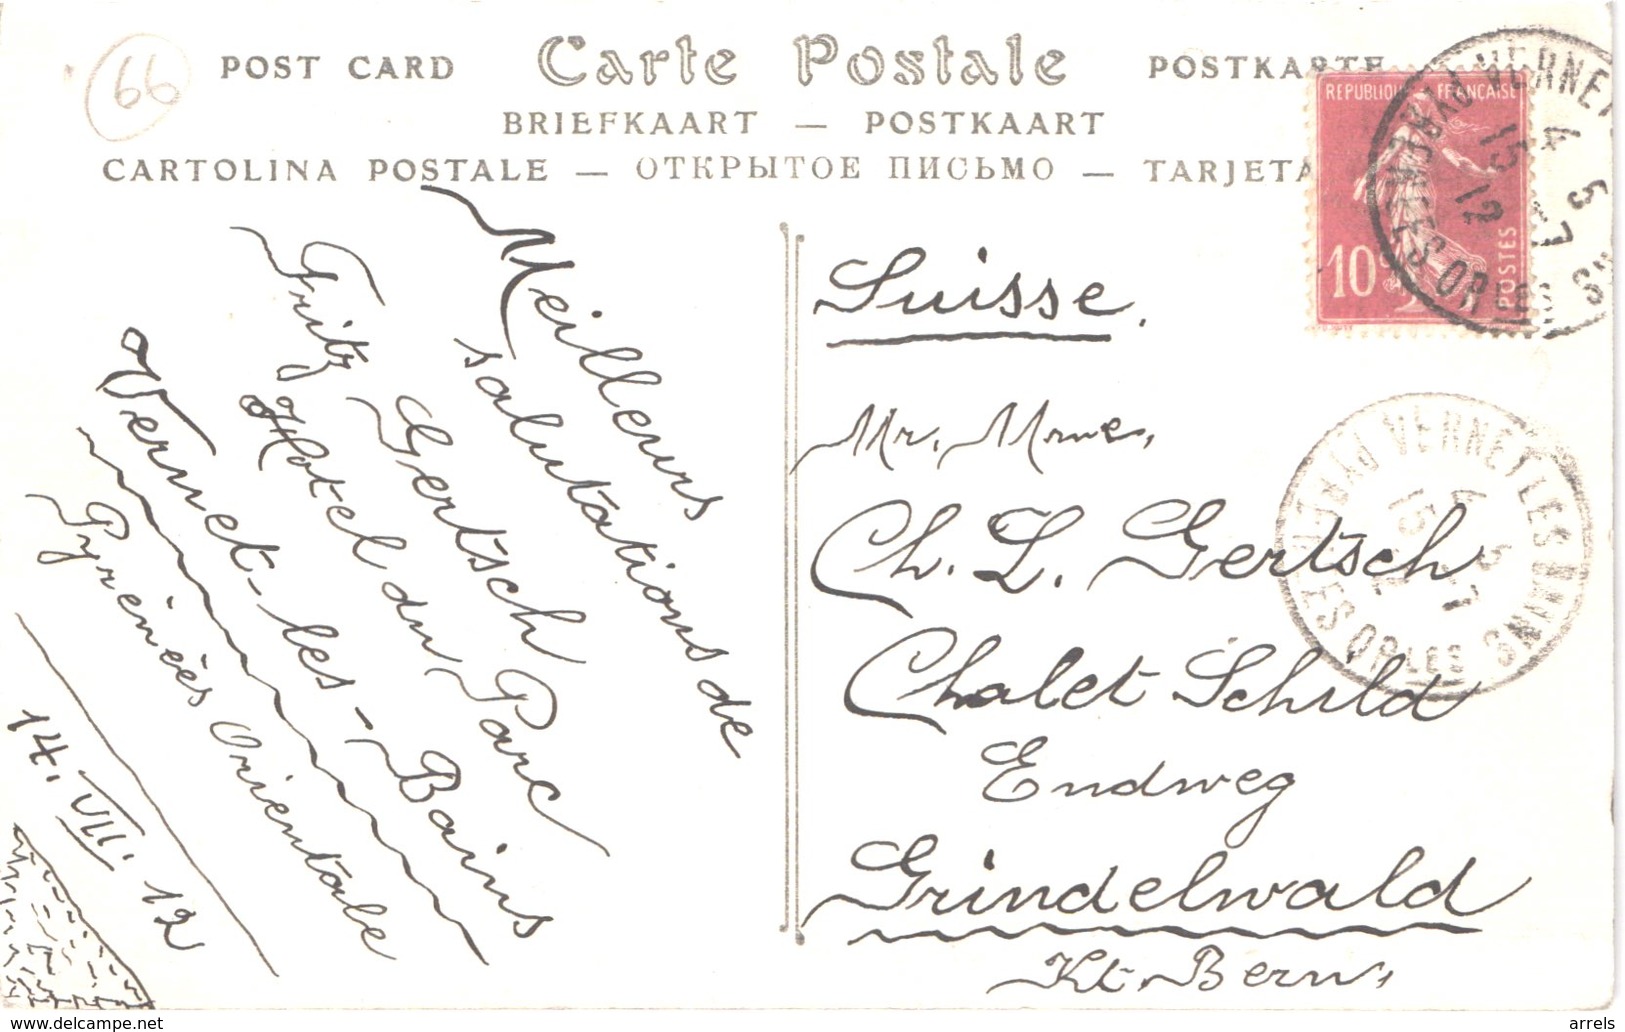 66
POST CARD Carte Postale POSTKARTE
BRIEFKAART — POSTKAART
CARTOLINA POSTALE — ОТКРЫТОЕ ПИСЬМО — TARJETA
REPUBLIQUE FRANCAISE
10c
POSTES
VERNET
15 7
12
PYRENEES ORLES
Meilleurs
salutations de
Fritz Gertsch
Hotel du Parc
Vernet-les-Bains
Pyrénées Orientale
14. VII. 12
Suisse.
Mr. Mme.
Ch. L. Gertsch
Chalet Schild
Endweg
Grindelwald
Kt. Bern
VERNET LES BAINS
15 7
12
ORLES
www.delcampe.net
arrels